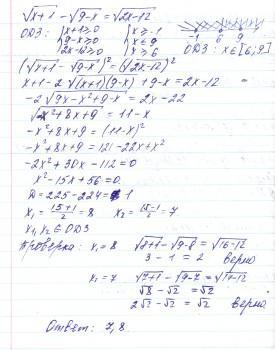 √x+1 − √9−x = √2x−12
ОДЗ: { x+1≥0 { x≥−1
9−x≥0 x≤9
2x−12≥0 x≥6
−1 6 9
ОДЗ: x∈[6;9]
(√x+1 − √9−x)² = (√2x−12)²
x+1−2√(x+1)(9−x) + 9−x = 2x−12
−2√9x−x²+9−x = 2x−22
√−x²+8x+9 = 11−x
−x²+8x+9 = (11−x)²
−x²+8x+9 = 121−22x+x²
−2x²+30x−112=0
x²−15x+56=0
D=225−224=1
x₁ = 15+1/2 = 8 x₂ = 15−1/2 = 7
x₁,x₂ ∈ ОДЗ
Проверка: x₁=8 √8+1 − √9−8 = √16−12
3 − 1 = 2 верно
x₂=7 √7+1 − √9−7 = √14−12
√8 − √2 = √2
2√2 − √2 = √2 верно.
Ответ: 7,8.